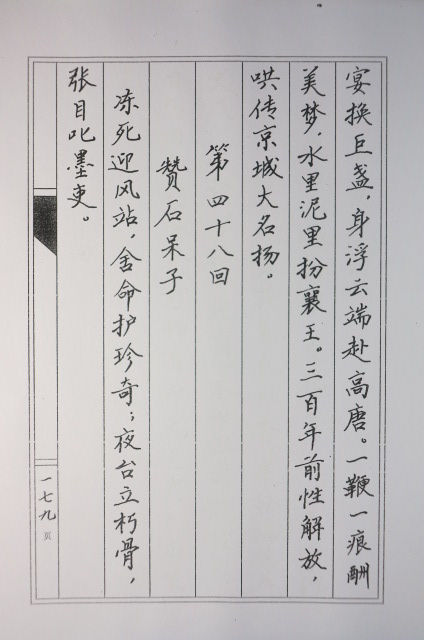 宴换巨盏,身浮云端赴高唐。一鞭一痕酬
美梦,水里泥里扮襄王。三百年前性解放,
哄传京城大名扬。
第四十八回
赞石呆子
冻死迎风站,舍命护珍奇;夜台立朽骨,
张目叱墨吏。
一七九页